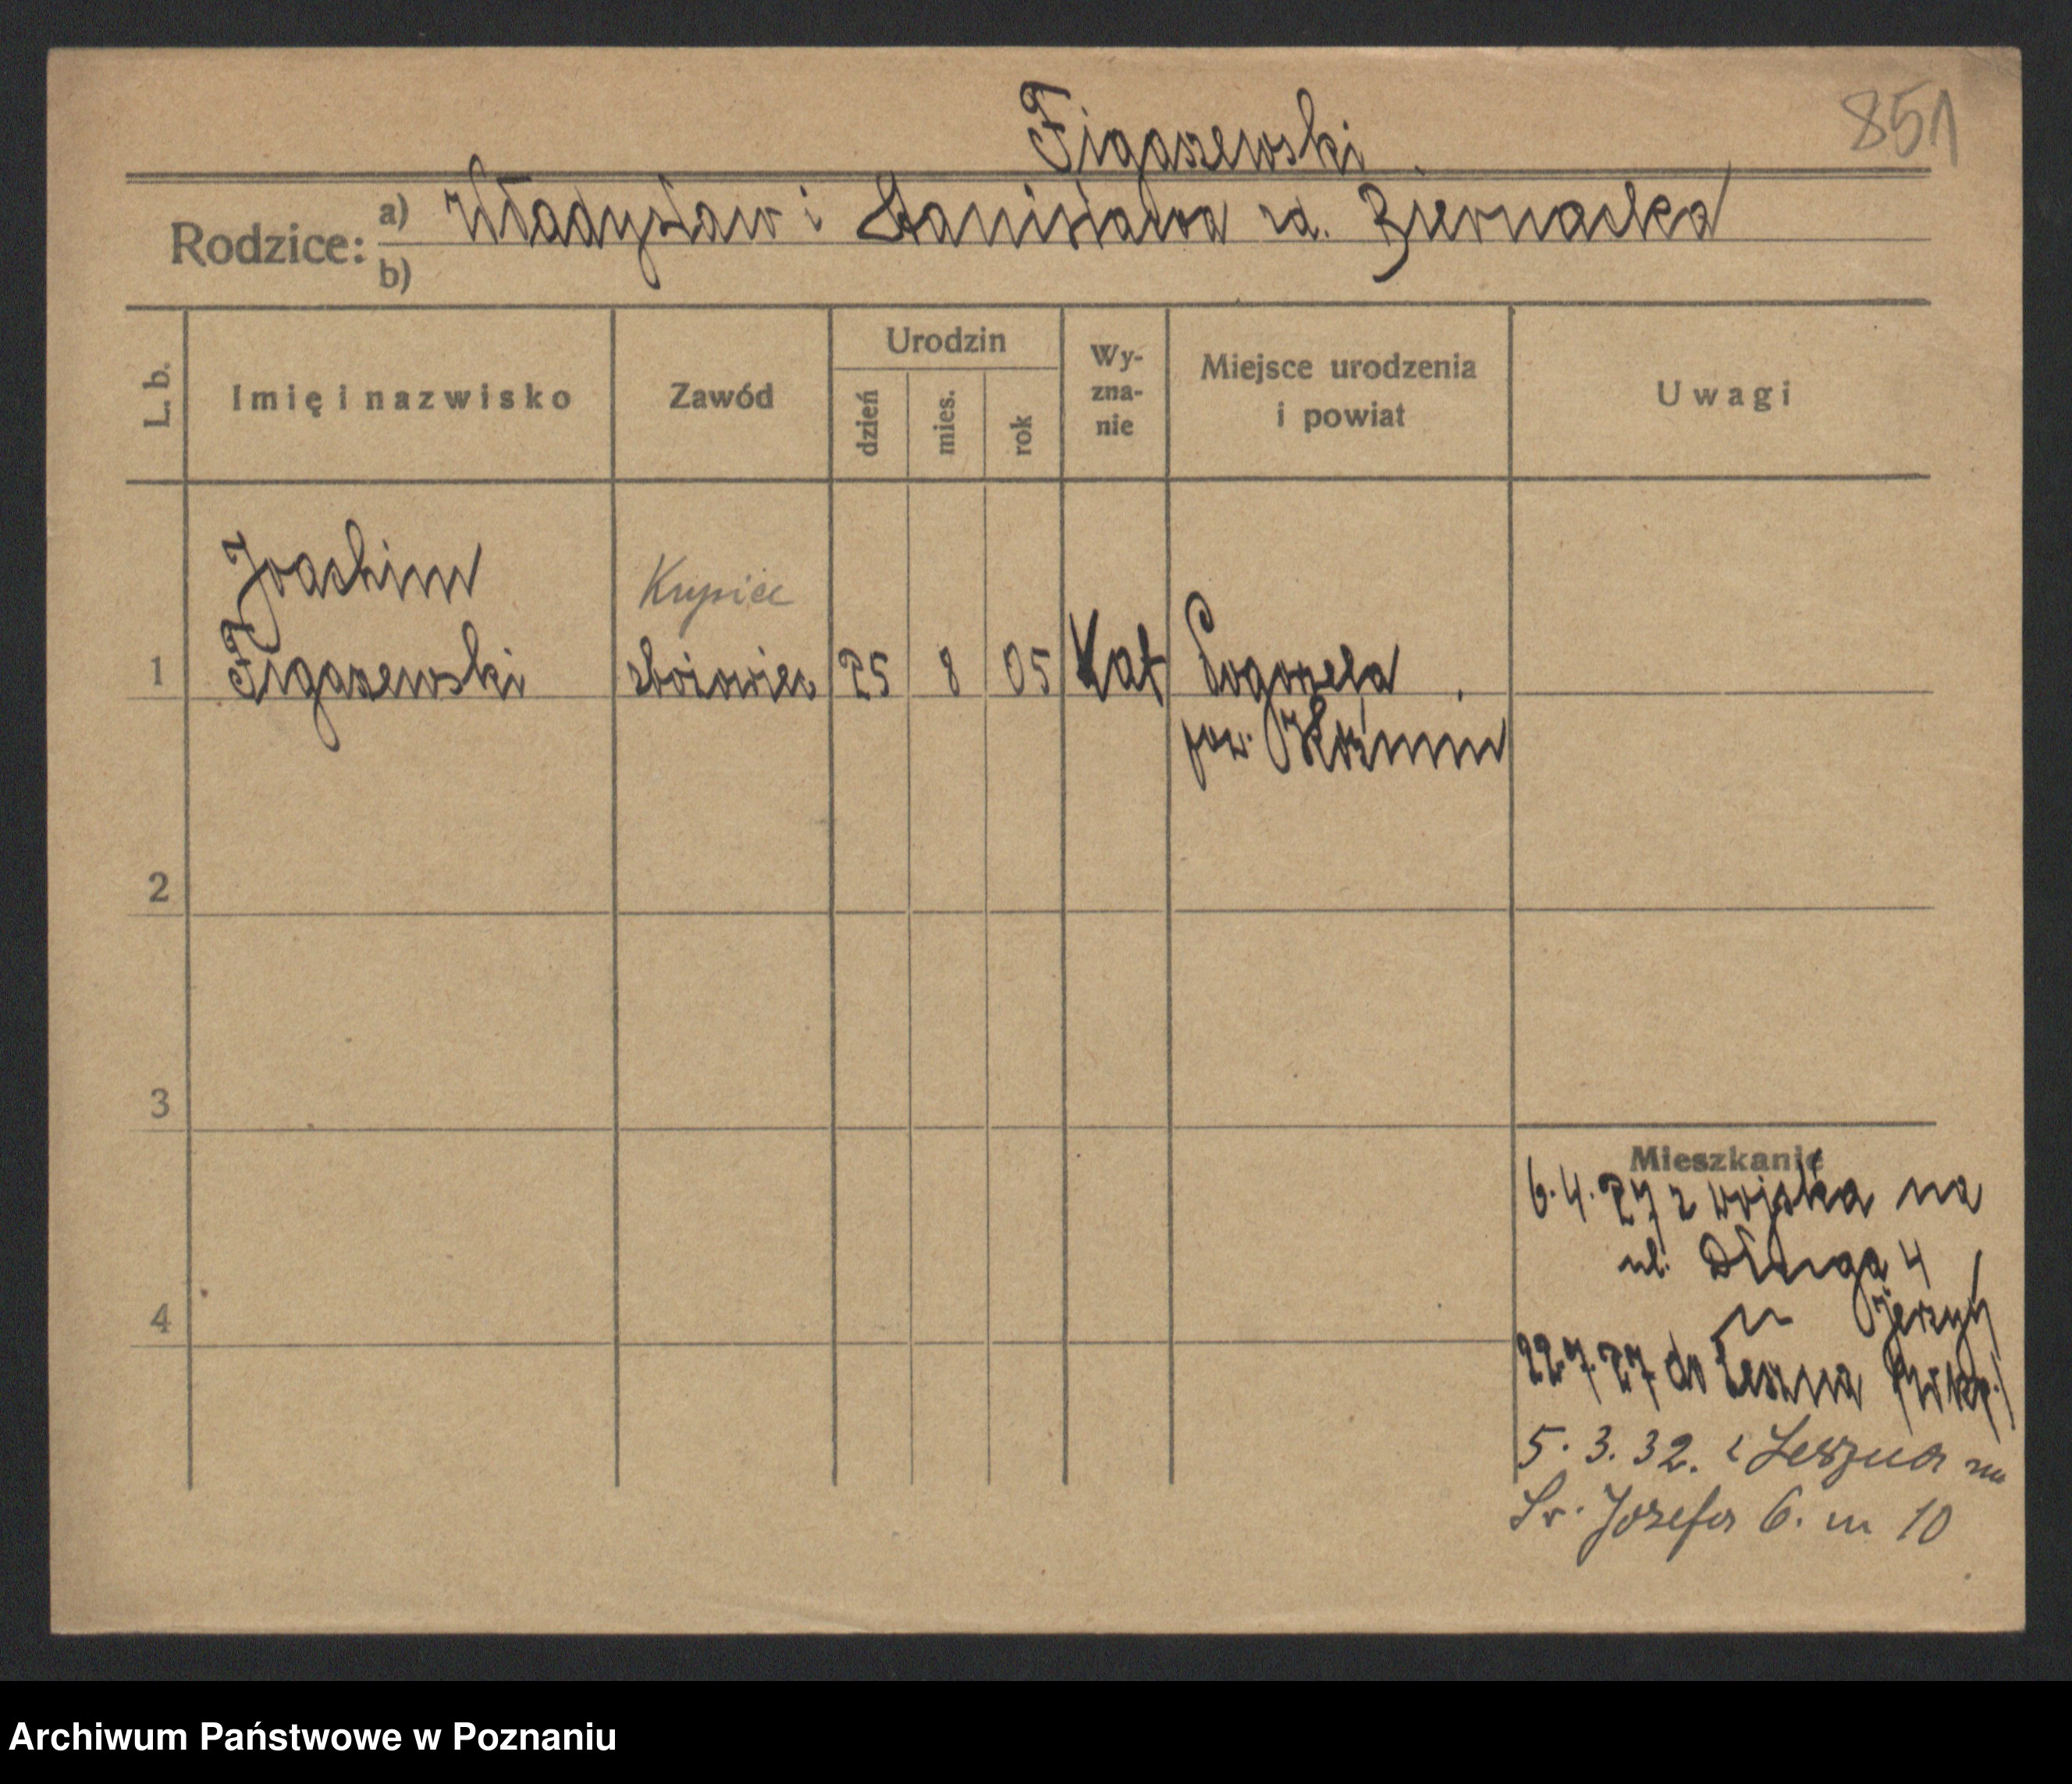 851
Figaszewski
Rodzice: a) Władysław i Stanisława zd. Biernacka
b)
L. b.
Imię i nazwisko
Zawód
Urodzin
dzień
mies.
rok
Wy-
zna-
nie
Miejsce urodzenia
i powiat
Uwagi
Joachim
Kupiec
1 Figaszewski zbożowiec 25 8 05 Kat Pogorzela
pow. Koźmin
2
3
4
Mieszkanie
6.4.27 z wojska na
ul. Długa 4
Jerzyk
22.7.27 do Leszna
5.3.32. z Leszna na
Sw. Józefa 6. m 10
Archiwum Państwowe w Poznaniu